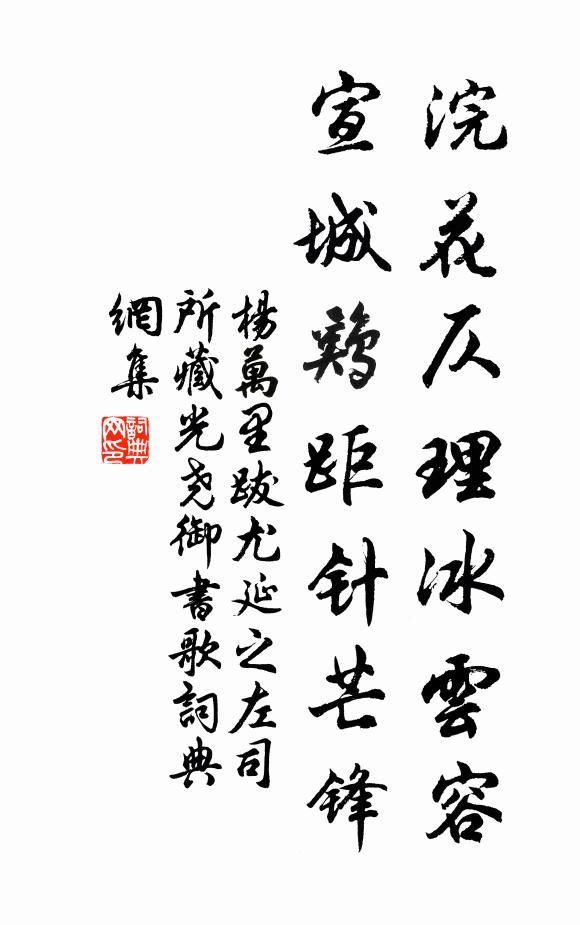 浣花仄理冰雲容
宣城鷄距针芒锋
楊萬里跋尤延之左司
所藏光尧御書歌詞典
網集
詞典
网印